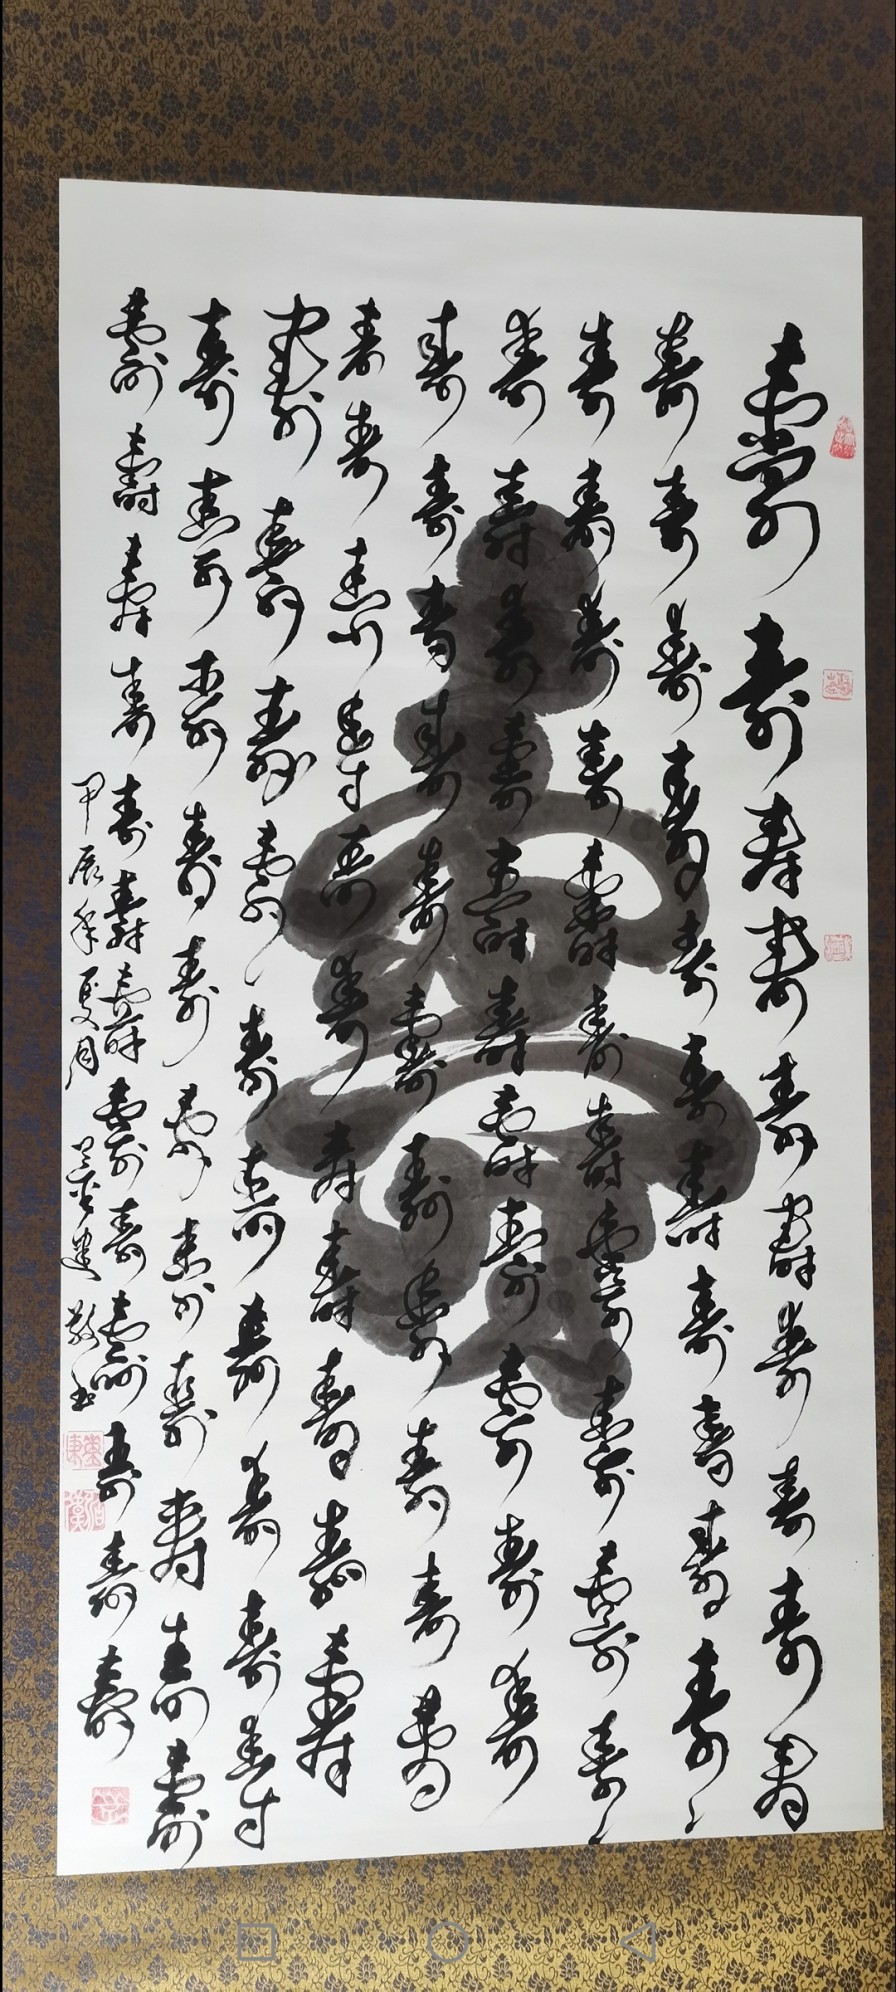 壽
壽壽壽壽壽壽壽壽壽壽
壽壽壽壽壽壽壽壽壽壽壽
壽壽壽壽壽壽壽壽壽壽壽
壽壽壽壽壽壽壽壽壽壽壽
壽壽壽壽壽壽壽壽壽壽壽
壽壽壽壽壽壽壽壽壽壽壽
壽壽壽壽壽壽壽壽壽壽
壽壽壽壽壽壽壽壽壽壽壽
壽壽壽壽壽壽壽壽壽壽壽壽壽
甲辰年夏月 敬书